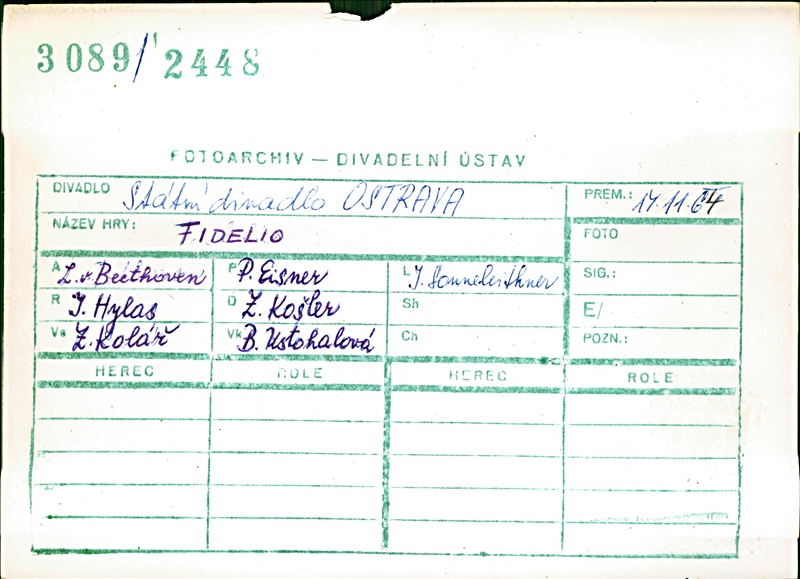 3089/ 2448
FOTOARCHIV — DIVADELNÍ ÚSTAV
DIVADLO Státní divadlo OSTRAVA PREM.: 17.11.64
NÁZEV HRY: FIDELIO FOTO
A L. v. Beethoven P P. Eisner L J. Sonneleithner SIG.:
R I. Hylas D Z. Košler Sh E/
Vs Z. Kolář Vk B. Ustohalová Ch POZN.:
HEREC ROLE HEREC ROLE